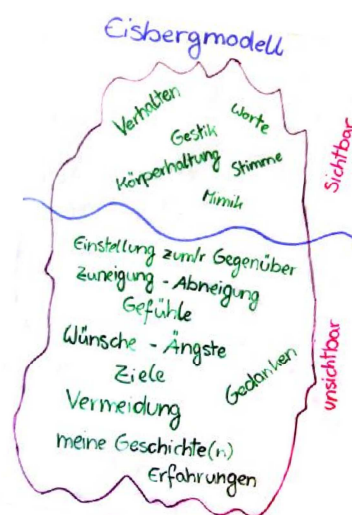 Eisbergmodell
Verhalten
Worte
Gestik
Körperhaltung
Stimme
Mimik
Sichtbar
Einstellung zum/r Gegenüber
Zuneigung - Abneigung
Gefühle
Wünsche - Ängste
Ziele
Gedanken
Vermeidung
meine Geschichte(n)
Erfahrungen
unsichtbar